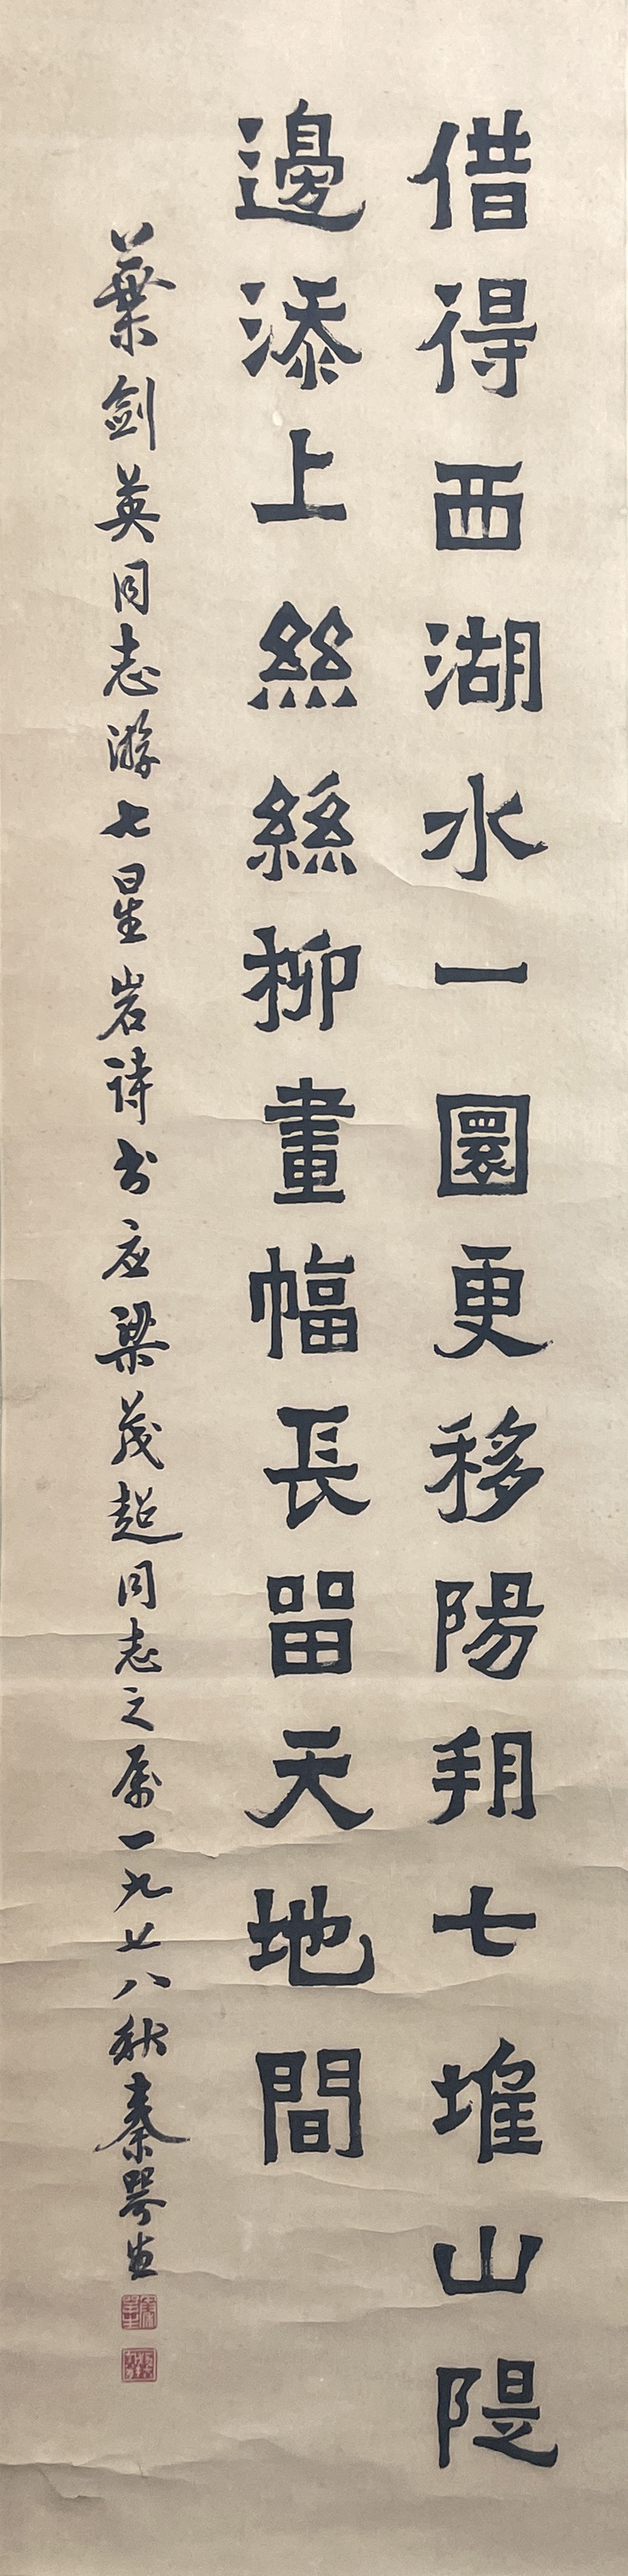 借得西湖水一圜更移陽朔七堆山隄
邊添上絲絲柳畫幅長留天地間
葉劍英同志游七星岩詩书应梁茂超同志之属一九七八秋秦咢生